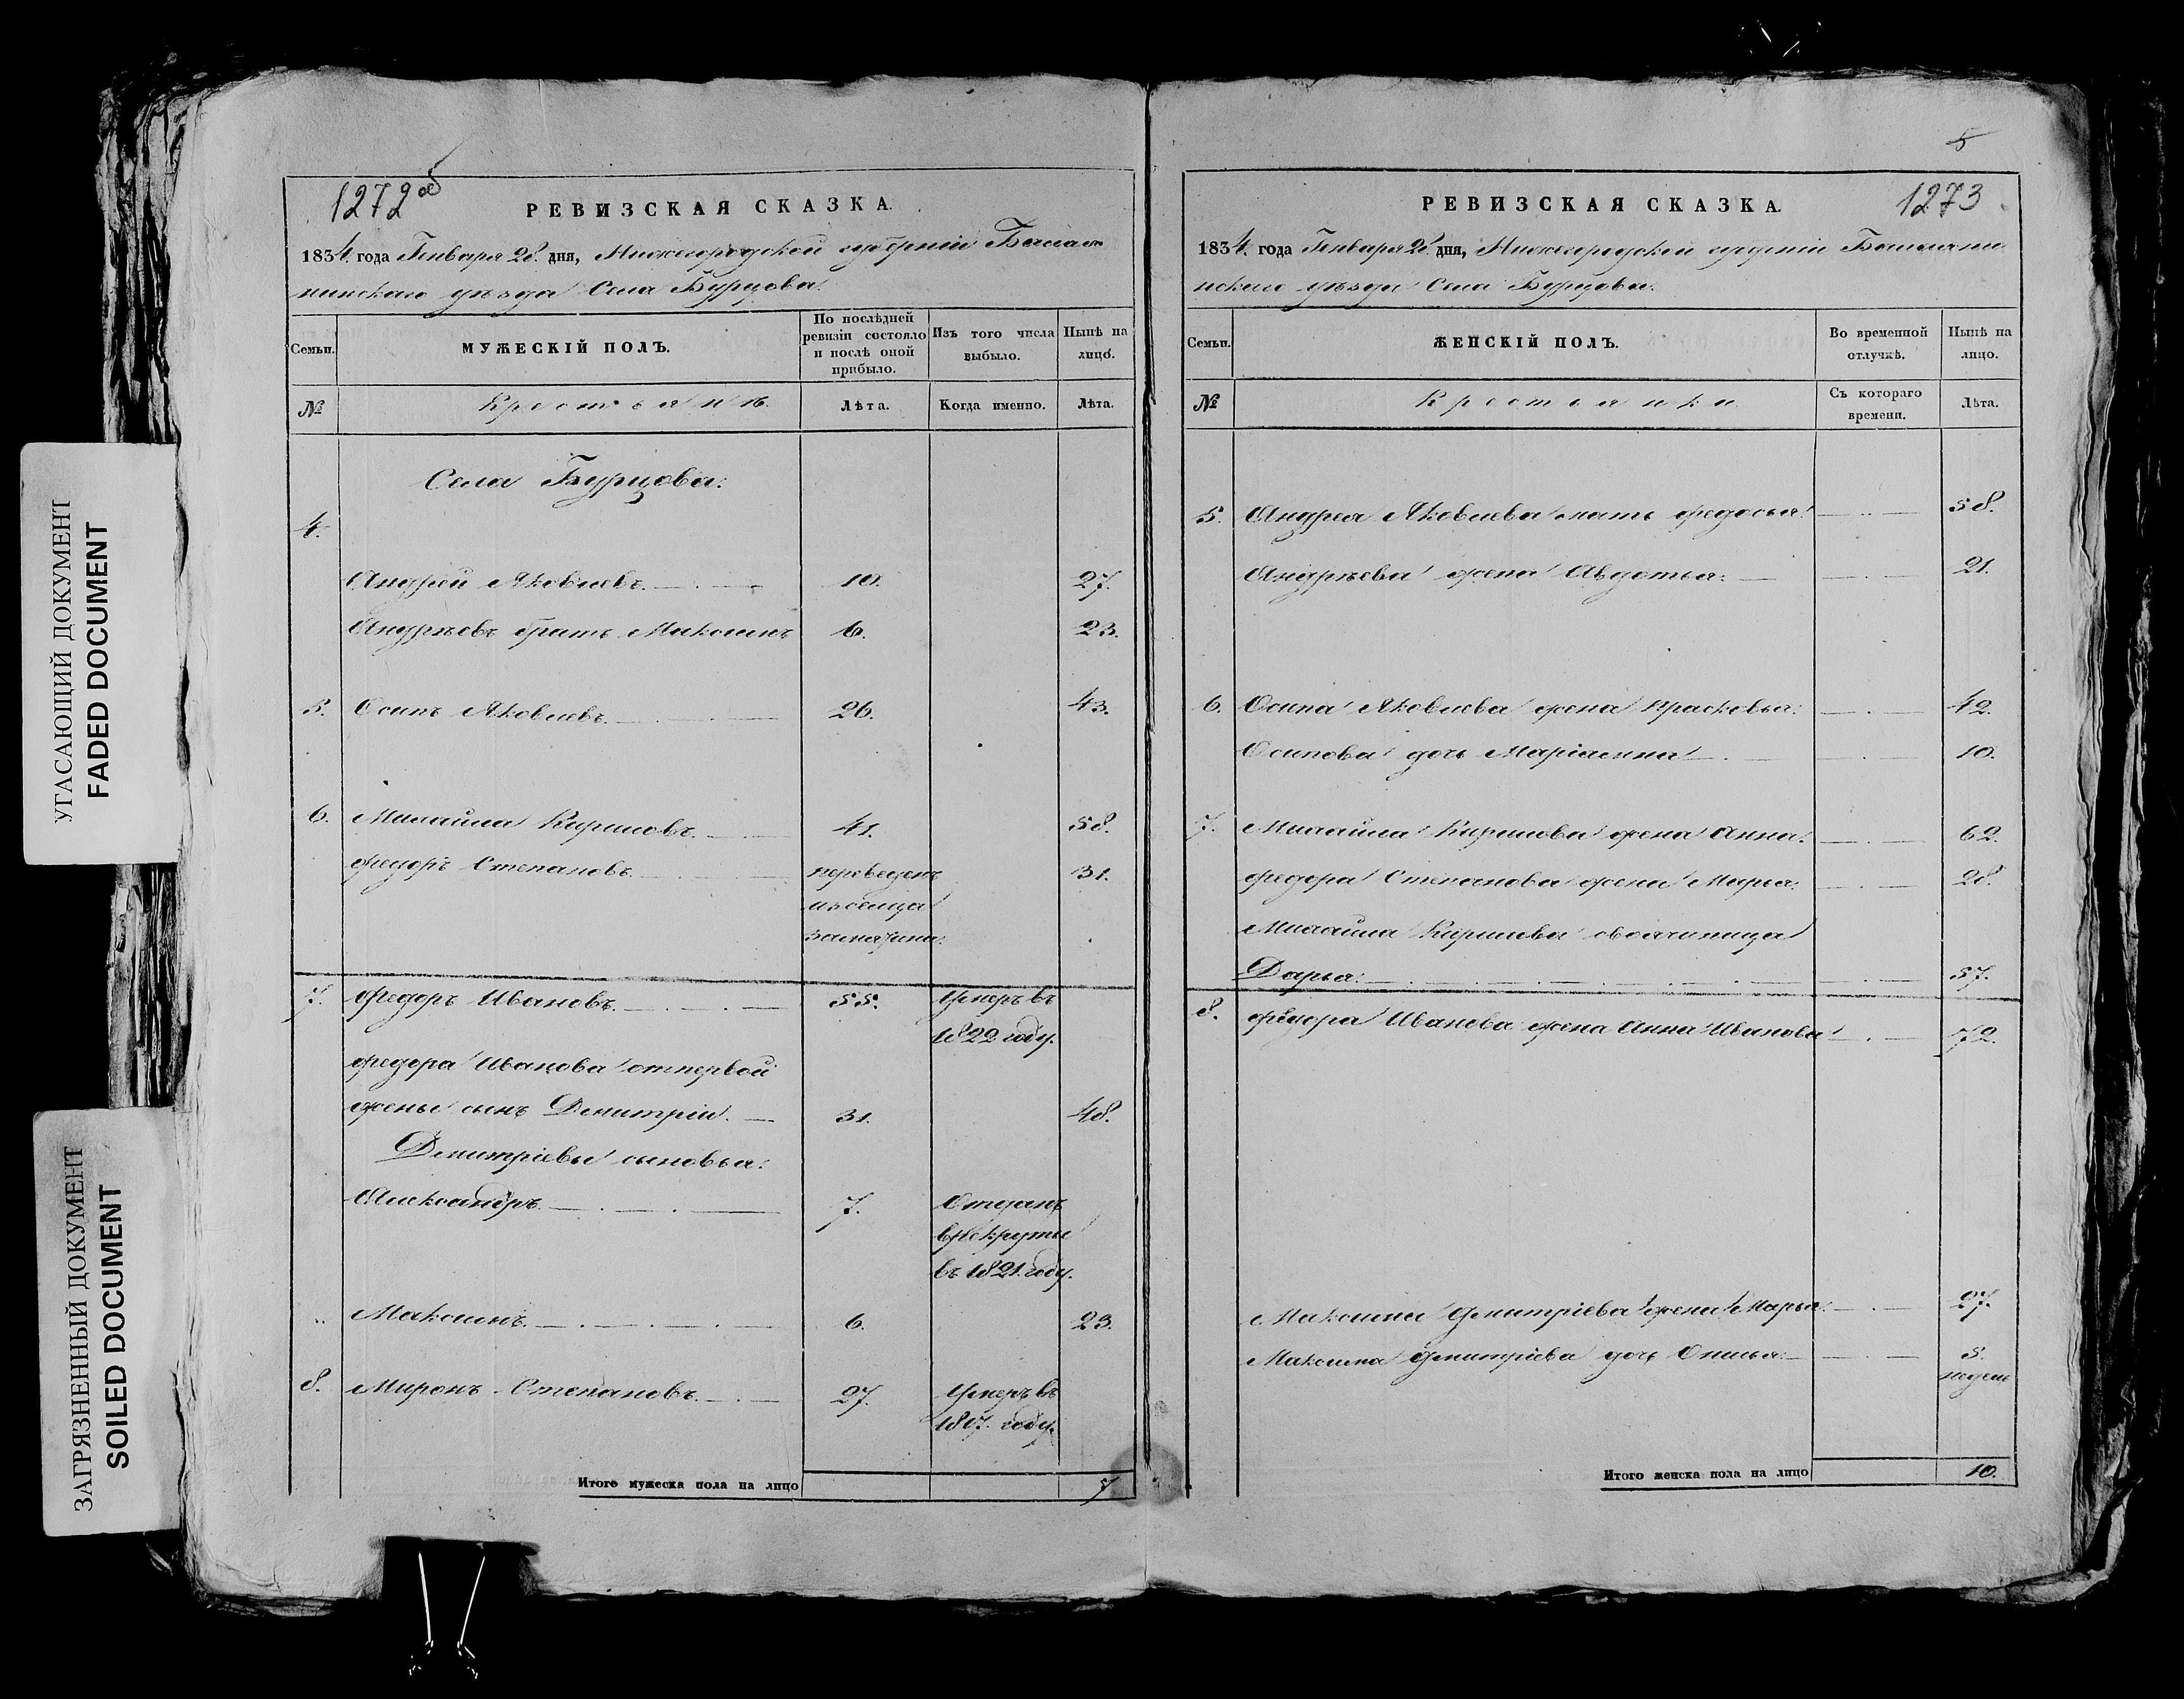 УГАСАЮЩИЙ ДОКУМЕНТ
FADED DOCUMENT
ЗАГРЯЗНЕННЫЙ ДОКУМЕНТ
SOILED DOCUMENT
1272об
РЕВИЗСКАЯ СКАЗКА.
1834. года Генваря 28. дня, Нижегородской губерніи Балах
нинскаго уѣзда Села Бурцова.
Семьи.
МУЖЕСКІЙ ПОЛЪ.
По послѣдней
ревизіи состояло
и послѣ оной
прибыло.
Изъ того числа
выбыло.
Нынѣ на
лицо.
№
Крестьянъ.
Лѣта.
Когда именно.
Лѣта.
Села Бурцова:
4.
Андрей Яковлевъ. 10. 27.
Андрѣевъ братъ Максимъ 6. 23.
5. Осипъ Яковлевъ. 26. 43.
6. Михайла Кириловъ. 41. 58.
Федоръ Степановъ. переведенъ 31.
изсельца
7. Федоръ Ивановъ. 55. Умеръ въ
1822 году.
Федора Иванова отпервой
жены сынъ Дмитрій. 31. 48.
Дмитріевы сыновья:
Александръ. 7. Отданъ
врекруты
въ 1821. году.
" Максимъ. 6. 23.
8. Миронъ Степановъ. 27. Умеръ въ
1817. году.
Итого мужеска пола на лицо 7
5
1273
РЕВИЗСКАЯ СКАЗКА.
1834. года Генваря 28. дня, Нижегородской губерніи Балахни
нскаго уѣзда Села Бурцова.
Семьи.
ЖЕНСКІЙ ПОЛЪ.
Во временной
отлучкѣ.
Нынѣ на
лицо.
№
Крестьянки
Съ котораго
времени.
Лѣта.
5. Андрея Яковлева мать Федосья. 58.
Андрѣева жена Авдотья: 21.
6. Осипа Яковлева жена Прасковья: 42.
Осипова дочь Маріамна 10.
7. Михайла Кирилова жена Анна: 62.
Федора Степанова жена Марья: 28.
Михайла Кирилова своячиница
Дарья: 57.
8. Федора Иванова жена Анна Иванова 72.
Максима Дмитріева жена Марья: 27.
Максима Дмитріева дочь 5.
недель
Итого женска пола на лицо 10.